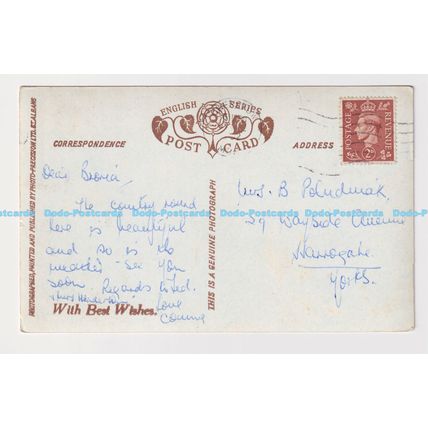 ENGLISH SERIES
POST CARD
CORRESPONDENCE
ADDRESS
POSTAGE REVENUE
2D
PHOTOGRAPHED, PRINTED AND PUBLISHED BY PHOTO-PRECISION LTD. ST. ALBANS
THIS IS A GENUINE PHOTOGRAPH
Dear Bronia,
The country round
here is beautiful
and so is the
weather. See you
soon. Regards to Ted.
Love
With Best Wishes.
Mrs. B
59 Wayside Avenue
Harrogate.
Yorks.
Dodo-Postcards Dodo-Postcards Dodo-Postcards Dodo-Postcards